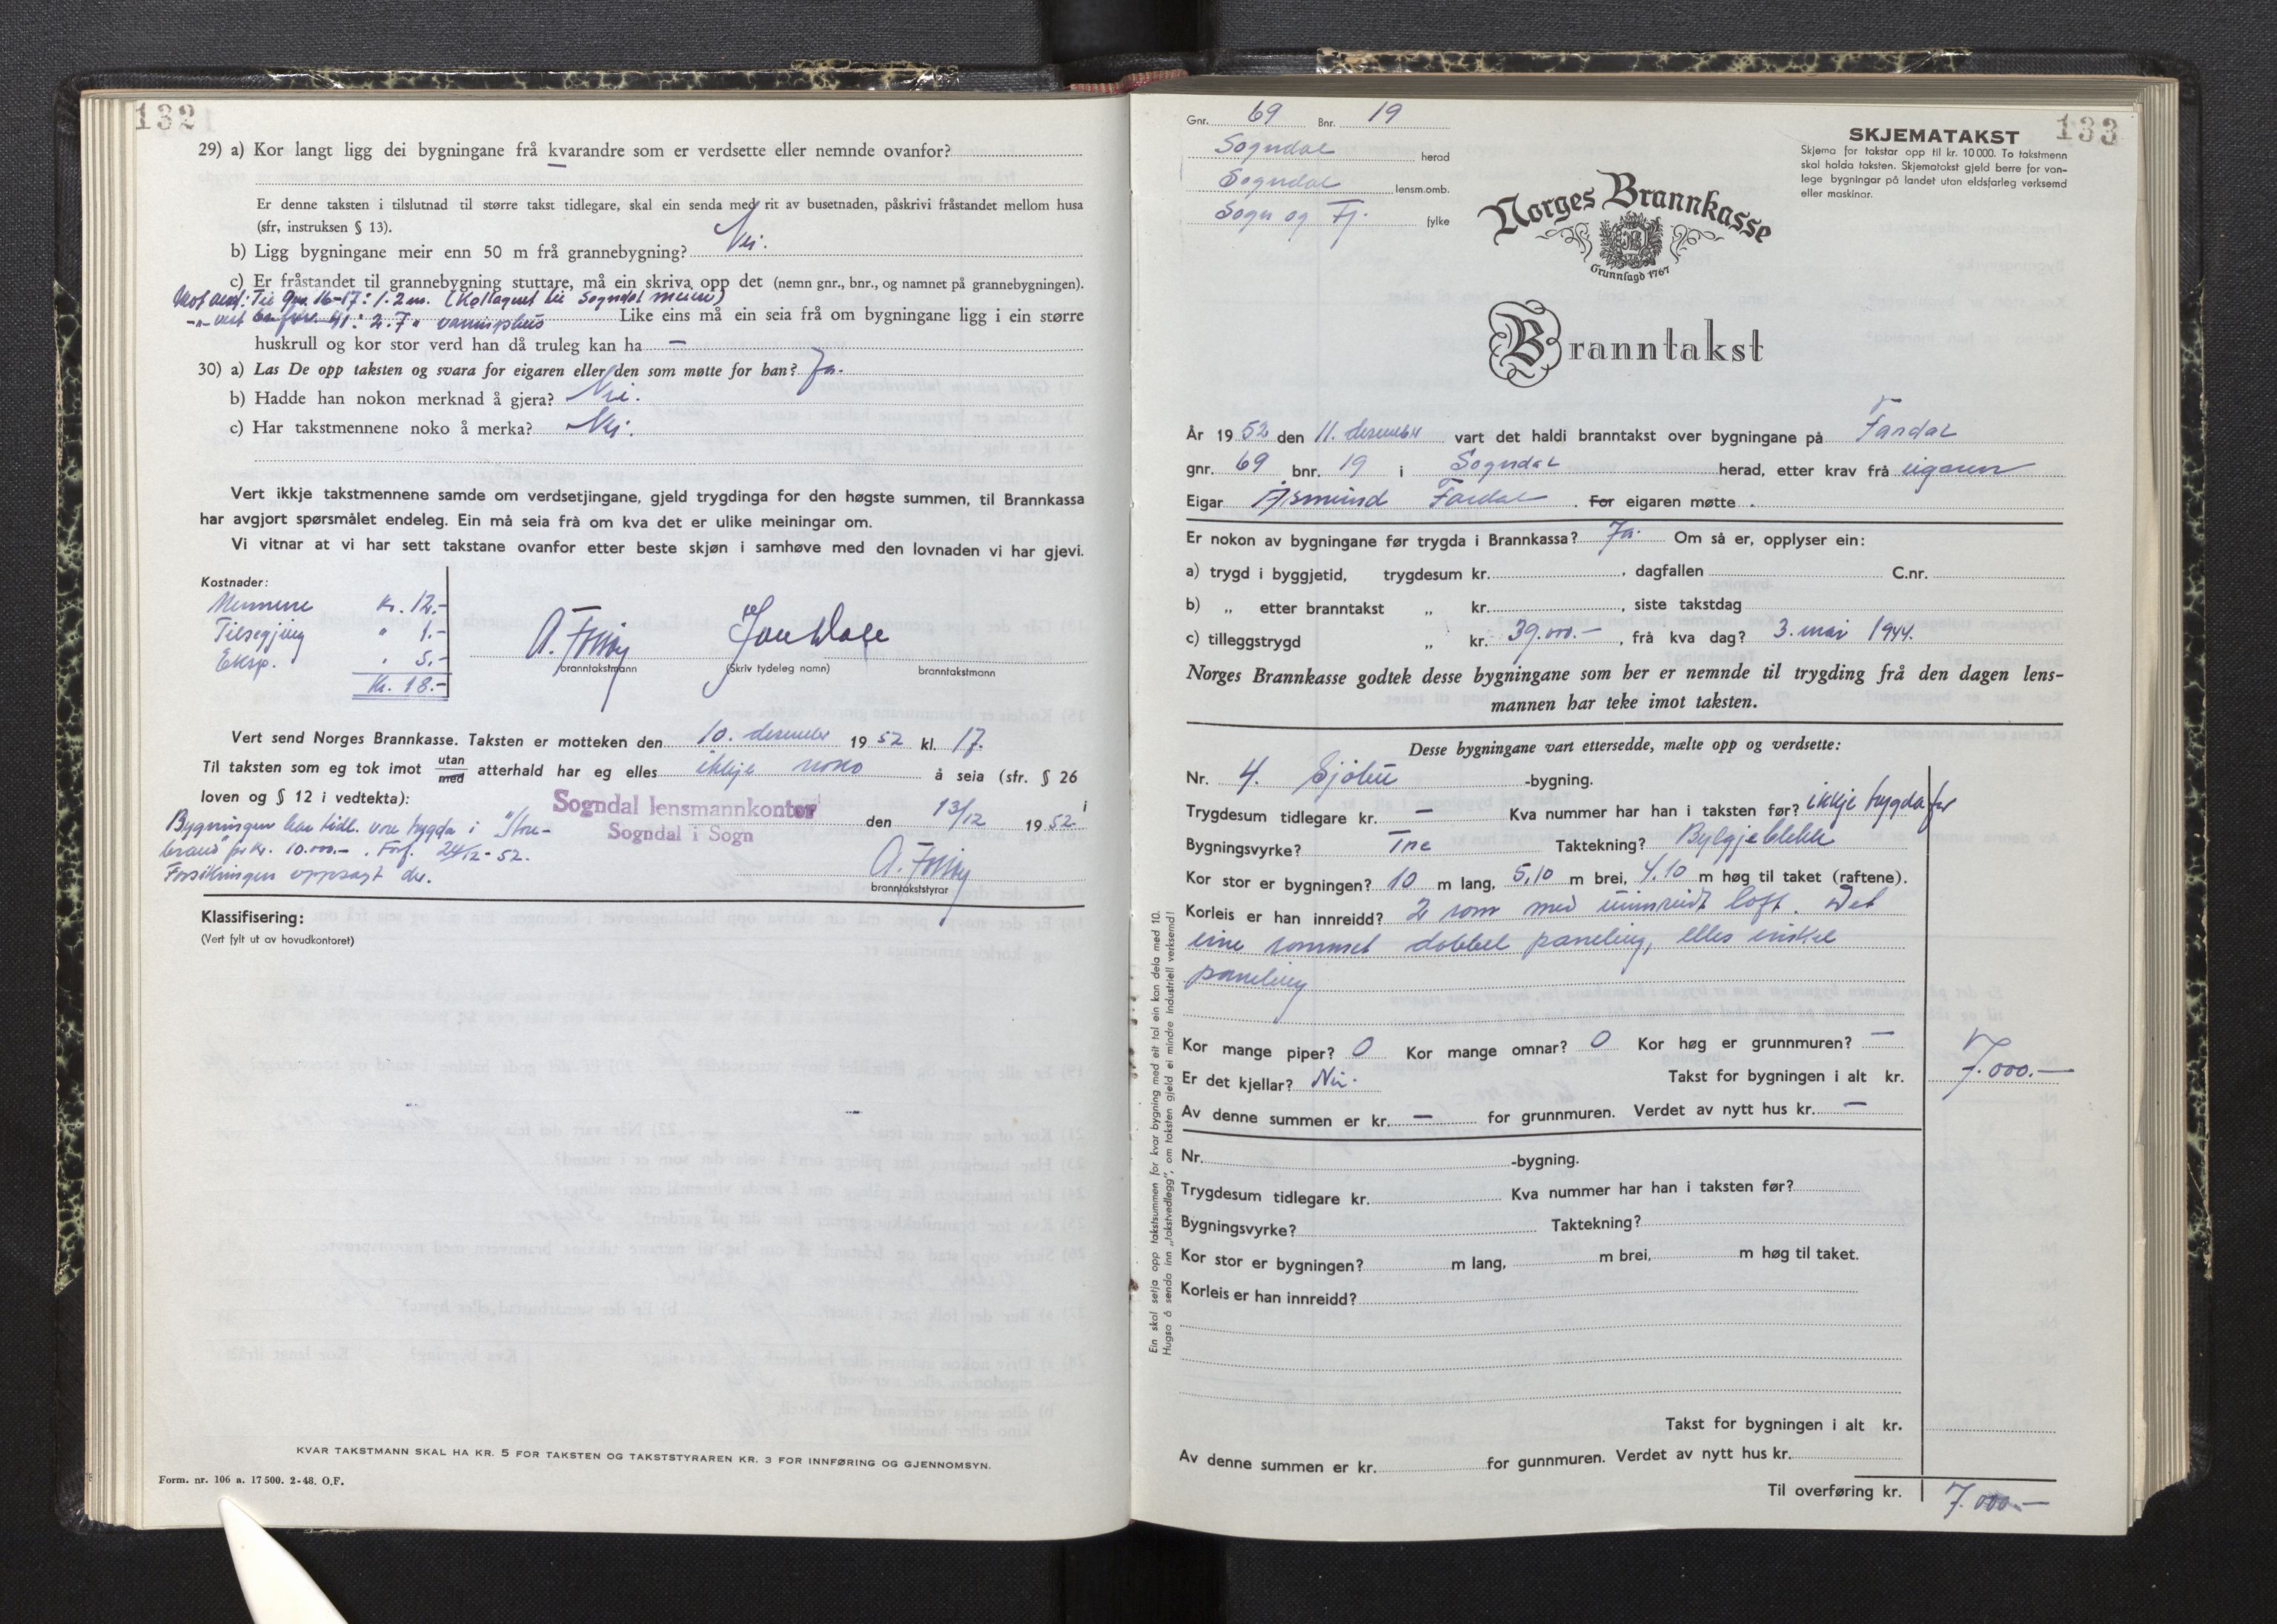 132
29) a) Kor langt ligg dei bygningane frå kvarandre som er verdsette eller nemnde ovanfor?
—
Er denne taksten i tilslutnad til større takst tidlegare, skal ein senda med rit av busetnaden, påskrivi fråstandet mellom husa
(sfr, instruksen § 13).
b) Ligg bygningane meir enn 50 m frå grannebygning? Nei.
c) Er fråstandet til grannebygning stuttare, må ein skriva opp det (nemn gnr., bnr., og namnet på grannebygningen).
Mot aust: Til gnr. 16-17: 1.2 m. (Kollageret til Sogndal meieri)
-"- vest 41: 2.7 " Like eins må ein seia frå om bygningane ligg i ein større
huskrull og kor stor verd han då truleg kan ha —
30) a) Las De opp taksten og svara for eigaren eller den som møtte for han? Ja.
b) Hadde han nokon merknad å gjera? Nei.
c) Har takstmennene noko å merka? Nei.
Vert ikkje takstmennene samde om verdsetjingane, gjeld trygdinga for den høgste summen, til Brannkassa
har avgjort spørsmålet endeleg. Ein må seia frå om kva det er ulike meiningar om.
Vi vitnar at vi har sett takstane ovanfor etter beste skjøn i samhøve med den lovnaden vi har gjevi.
Kostnader:
Mennene Kr. 12.-
Tilsegjing " 1.-
Eksp. " 5.-
Kr. 18.-
A.
branntakstmann (Skriv tydeleg namn) branntakstmann
Vert send Norges Brannkasse. Taksten er motteken den 10. desember 1952 kl. 17.
Til taksten som eg tok imot utan med atterhald har eg elles ikkje noko å seia (sfr. § 26
loven og § 12 i vedtekta): i
Sogndal lensmannkontor
Sogndal i Sogn
den 13/12 1952
Bygningen har tidl. vore trygda i "Store-
brand" for kr. 10.000.- . Forf. 24/12-52.
Forsikringen oppsagt der.
A.
branntakststyrar
Klassifisering:
(Vert fylt ut av hovudkontoret)
KVAR TAKSTMANN SKAL HA KR. 5 FOR TAKSTEN OG TAKSTSTYRAREN KR. 3 FOR INNFØRING OG GJENNOMSYN.
Form. nr. 106 a. 17 500. 2-48. O.F.
133
Gnr. 69 Bnr. 19
Sogndal herad
Sogndal lensm.omb.
Sogn og Fj. fylke
SKJEMATAKST
Skjema for takstar opp til kr. 10 000. To takstmenn
skal halda taksten. Skjematakst gjeld berre for van-
lege bygningar på landet utan eldsfarleg verksemd
eller maskinar.
Norges Brannkasse
Grunnlagd 1767
Branntakst
År 1952 den 11. desember vart det haldi branntakst over bygningane på Fardal
gnr. 69 bnr. 19 i Sogndal herad, etter krav frå eigaren
Eigar Åsmund Fardal . For eigaren møtte .
Er nokon av bygningane før trygda i Brannkassa? Ja. Om så er, opplyser ein:
a) trygd i byggjetid, trygdesum kr. , dagfallen C.nr.
b) „ etter branntakst „ kr. , siste takstdag
c) tilleggstrygd „ kr. 39.000.- , frå kva dag? 3. mai 1944.
Norges Brannkasse godtek desse bygningane som her er nemnde til trygding frå den dagen lens-
mannen har teke imot taksten.
Desse bygningane vart ettersedde, mælte opp og verdsette:
Nr. 4. Sjøbu -bygning.
Trygdesum tidlegare kr. — Kva nummer har han i taksten før? ikkje trygda før
Bygningsvyrke? Tre Taktekning? Bylgjeblekk
Kor stor er bygningen? 10 m lang, 5,10 m brei, 4.10 m høg til taket (raftene).
Korleis er han innreidd? 2 rom med uinnreidt loft. Det
eine rommet dobbel paneling, elles enkel
paneling
Kor mange piper? 0 Kor mange omnar? 0 Kor høg er grunnmuren? —
Er det kjellar? Nei. Takst for bygningen i alt kr. 7.000.—
Av denne summen er kr. — for grunnmuren. Verdet av nytt hus kr. —
Nr. -bygning.
Trygdesum tidlegare kr. Kva nummer har han i taksten før?
Bygningsvyrke? Taktekning?
Kor stor er bygningen? m lang, m brei, m høg til taket.
Korleis er han innreidd?
Takst for bygningen i alt kr.
Av denne summen er kr. for gunnmuren. Verdet av nytt hus kr.
Til overføring kr. 7.000.—
Ein skal setja opp takstsummen for kvar bygning med eit tal ein kan dela med 10.
Hugsa å senda inn „takstvedlegg", om taksten gjeld ei mindre industriell verksemd!